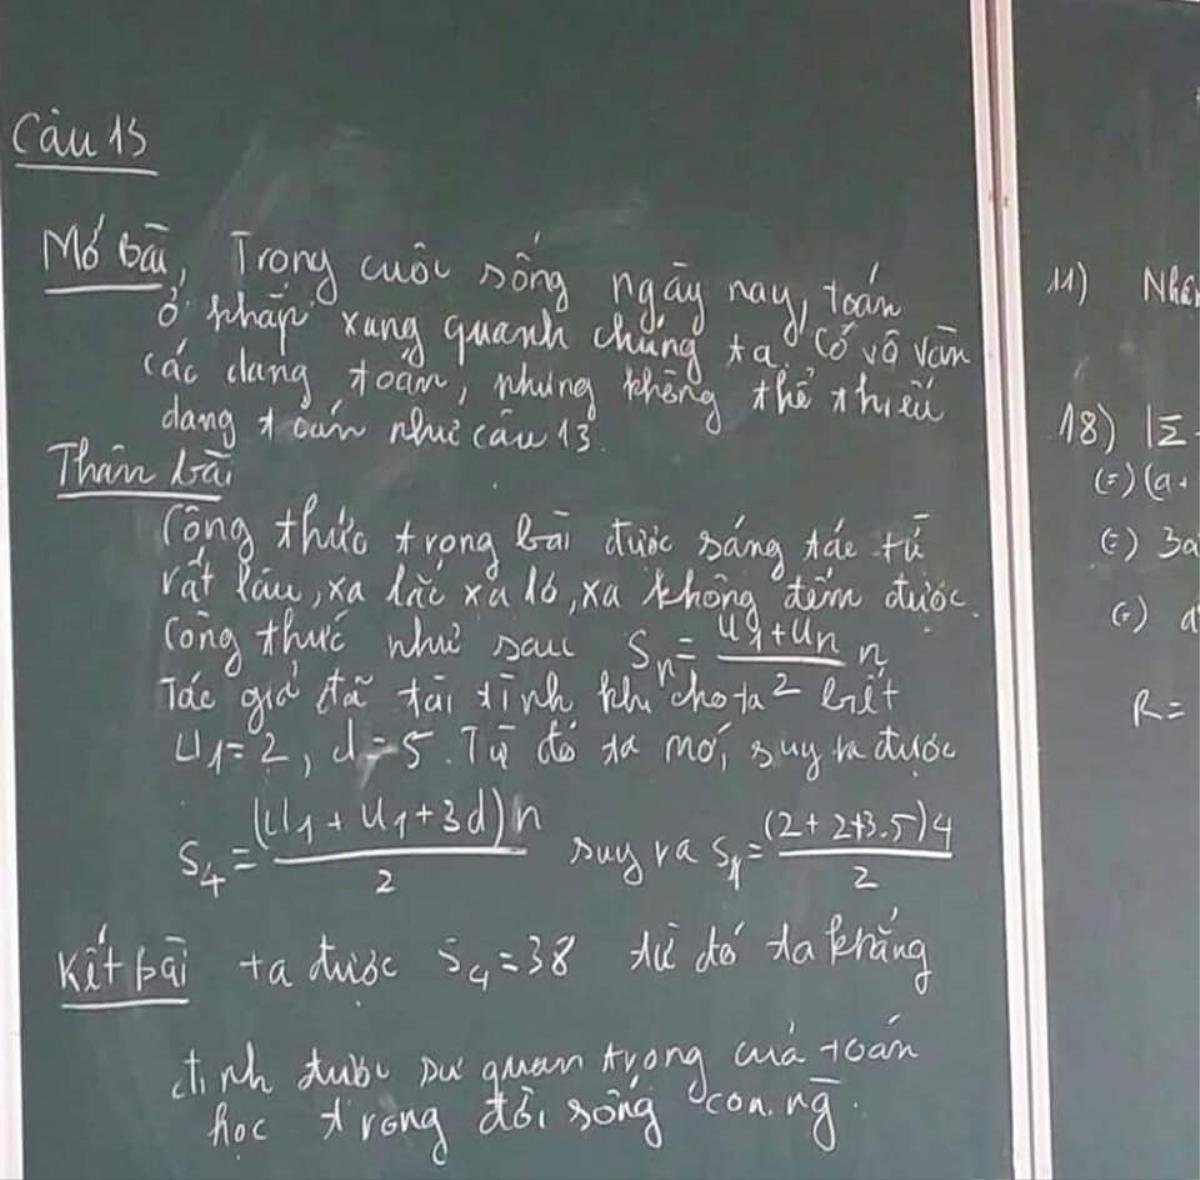 Câu 13
Mở bài, Trong cuộc sống ngày nay, toán
ở khắp xung quanh chúng ta. Có vô vàn
các dạng toán, nhưng không thể thiếu
dạng toán như câu 13.
Thân bài
Công thức trong bài được sáng tác từ
rất lâu, xa lắc xa lơ, xa không đếm được.
Công thức như sau Sn = (U1+Un)/2 n
Tác giả đã tài tình khi cho ta biết
U1=2, d=5. Từ đó ta mới suy ra được
S4 = (U1+U1+3d)n/2 suy ra S4 = (2+2+3.5)4/2
Kết bài ta được S4=38 từ đó ta khẳng
định được sự quan trọng của toán
học trong đời sống con ng.
11) Nhâ
18) |Z
(=) (a+
(=) 3a
(=) d
R=